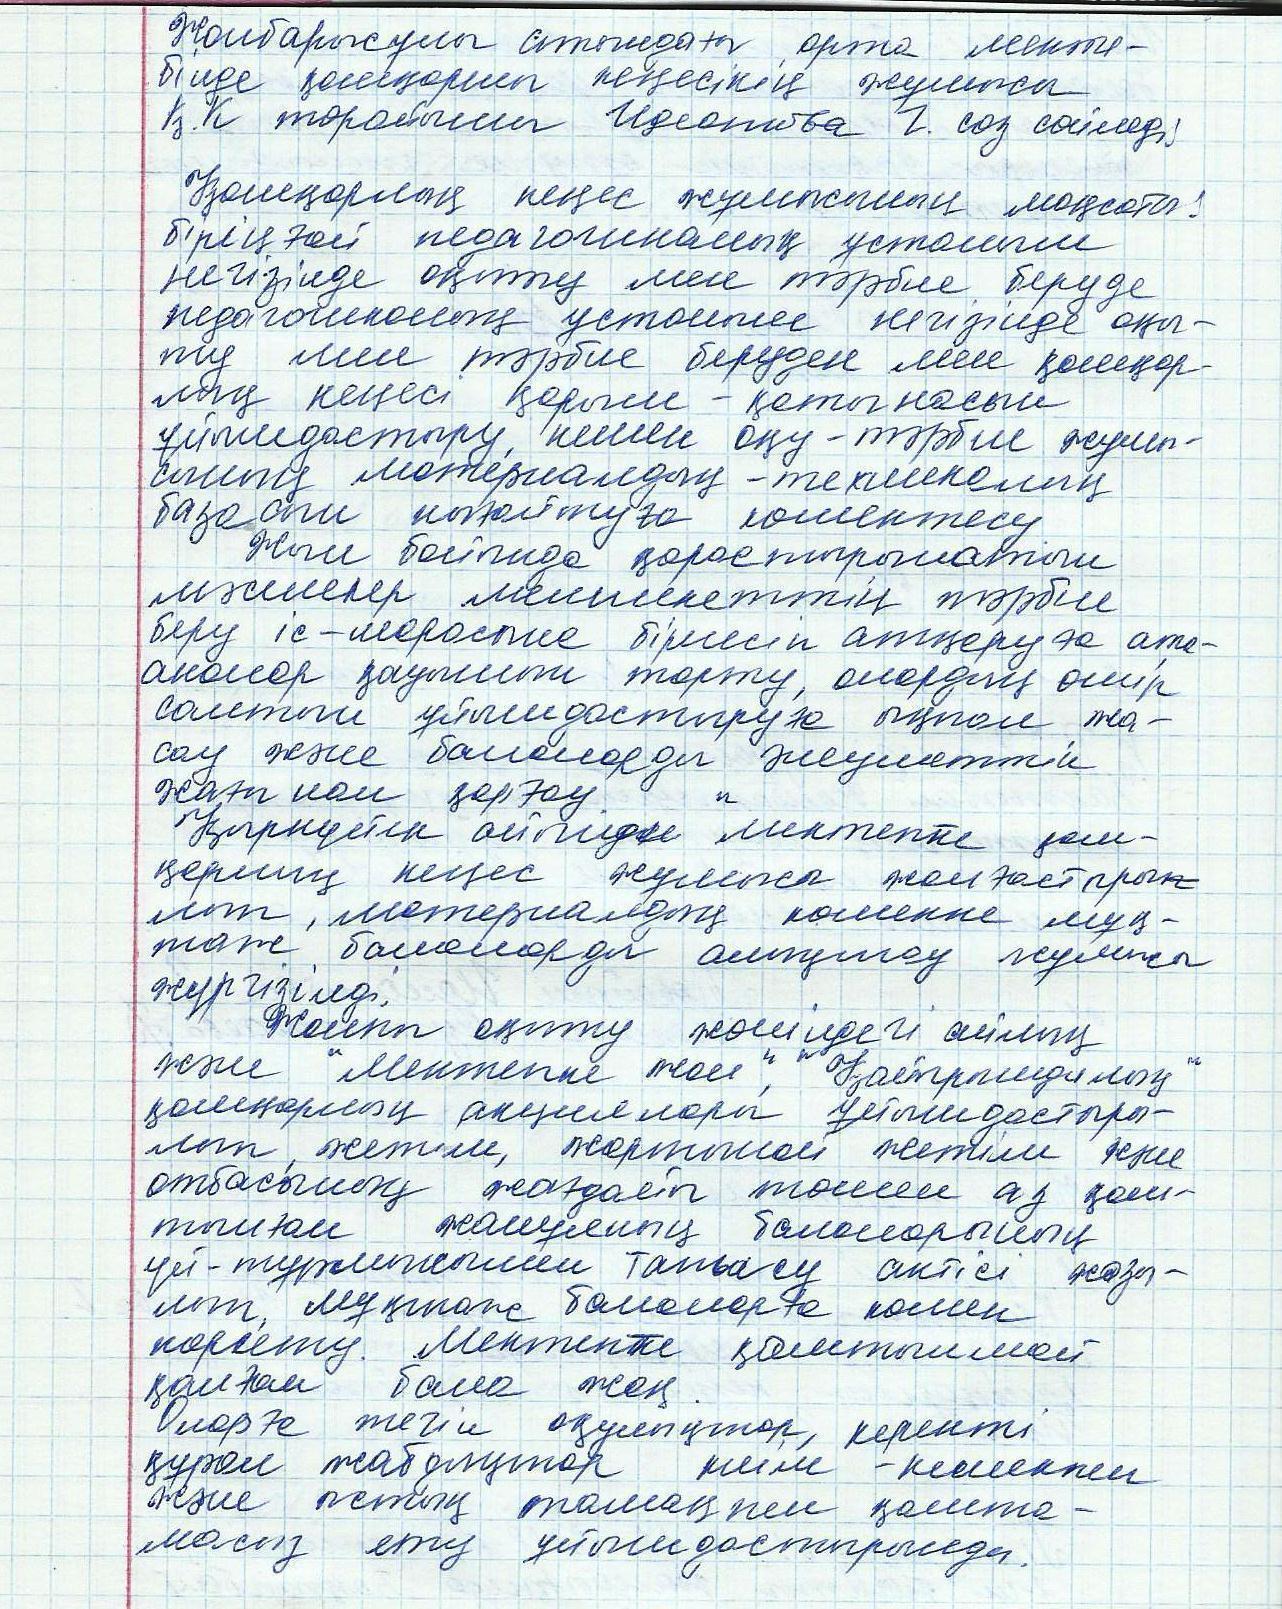 Жолбарысұлы атындағы орта мекте-
бінде қамқоршы кеңесінің жұмысы
Қ.К төрайымы Г. сөз сөйледі!
Қамқорлық кеңес жұмысының мақсаты!
біріңғай педагогикалық ұстаным
негізінде оқыту мен тәрбие беруде
педагогикалық ұстаным негізінде оқы-
ту мен тәрбие беруден мен қамқор-
лық кеңесі қарым-қатынасын
ұйымдастыру, кешен оқу-тәрбие жұмы-
сының материалдық-техникалық
базасын нығайтуға көмектесу
Жыл бойында қарастырылатын
мәселелер мемлекеттің тәрбие
беру іс-шарасына бірлесіп атқаруға ата-
аналар қауымын тарту, олардың өмір
салтын ұйымдастыруға ықпал жа-
сау және балаларды әлеуметтік
жағынан қорғау.
Қыркүйек айында мектепте қам-
қорлық кеңес жұмысы жалғастыры-
лып, материалдық көмекке мұқ-
таж балаларды анықтау жұмысы
жүргізілді.
Жалпы оқыту жөніндегі айлық
және "Мектепке жол", "Қайырымдылық"
қамқорлық акциялары ұйымдастыры-
лып, жетім, жартылай жетім және
отбасының жағдайы төмен аз қам-
тылған жанұялық балаларының
үй-тұрмысымен танысу актісі жазы-
лып, мұқтаж балаларға көмек
көрсету. Мектепте қамтылмай
қалған бала жоқ.
Оларға тегін оқулықтар, керекті
құрал жабдықтар киім-кешекпен
және ыстық тамақпен қамта-
масыз ету ұйымдастырылды.